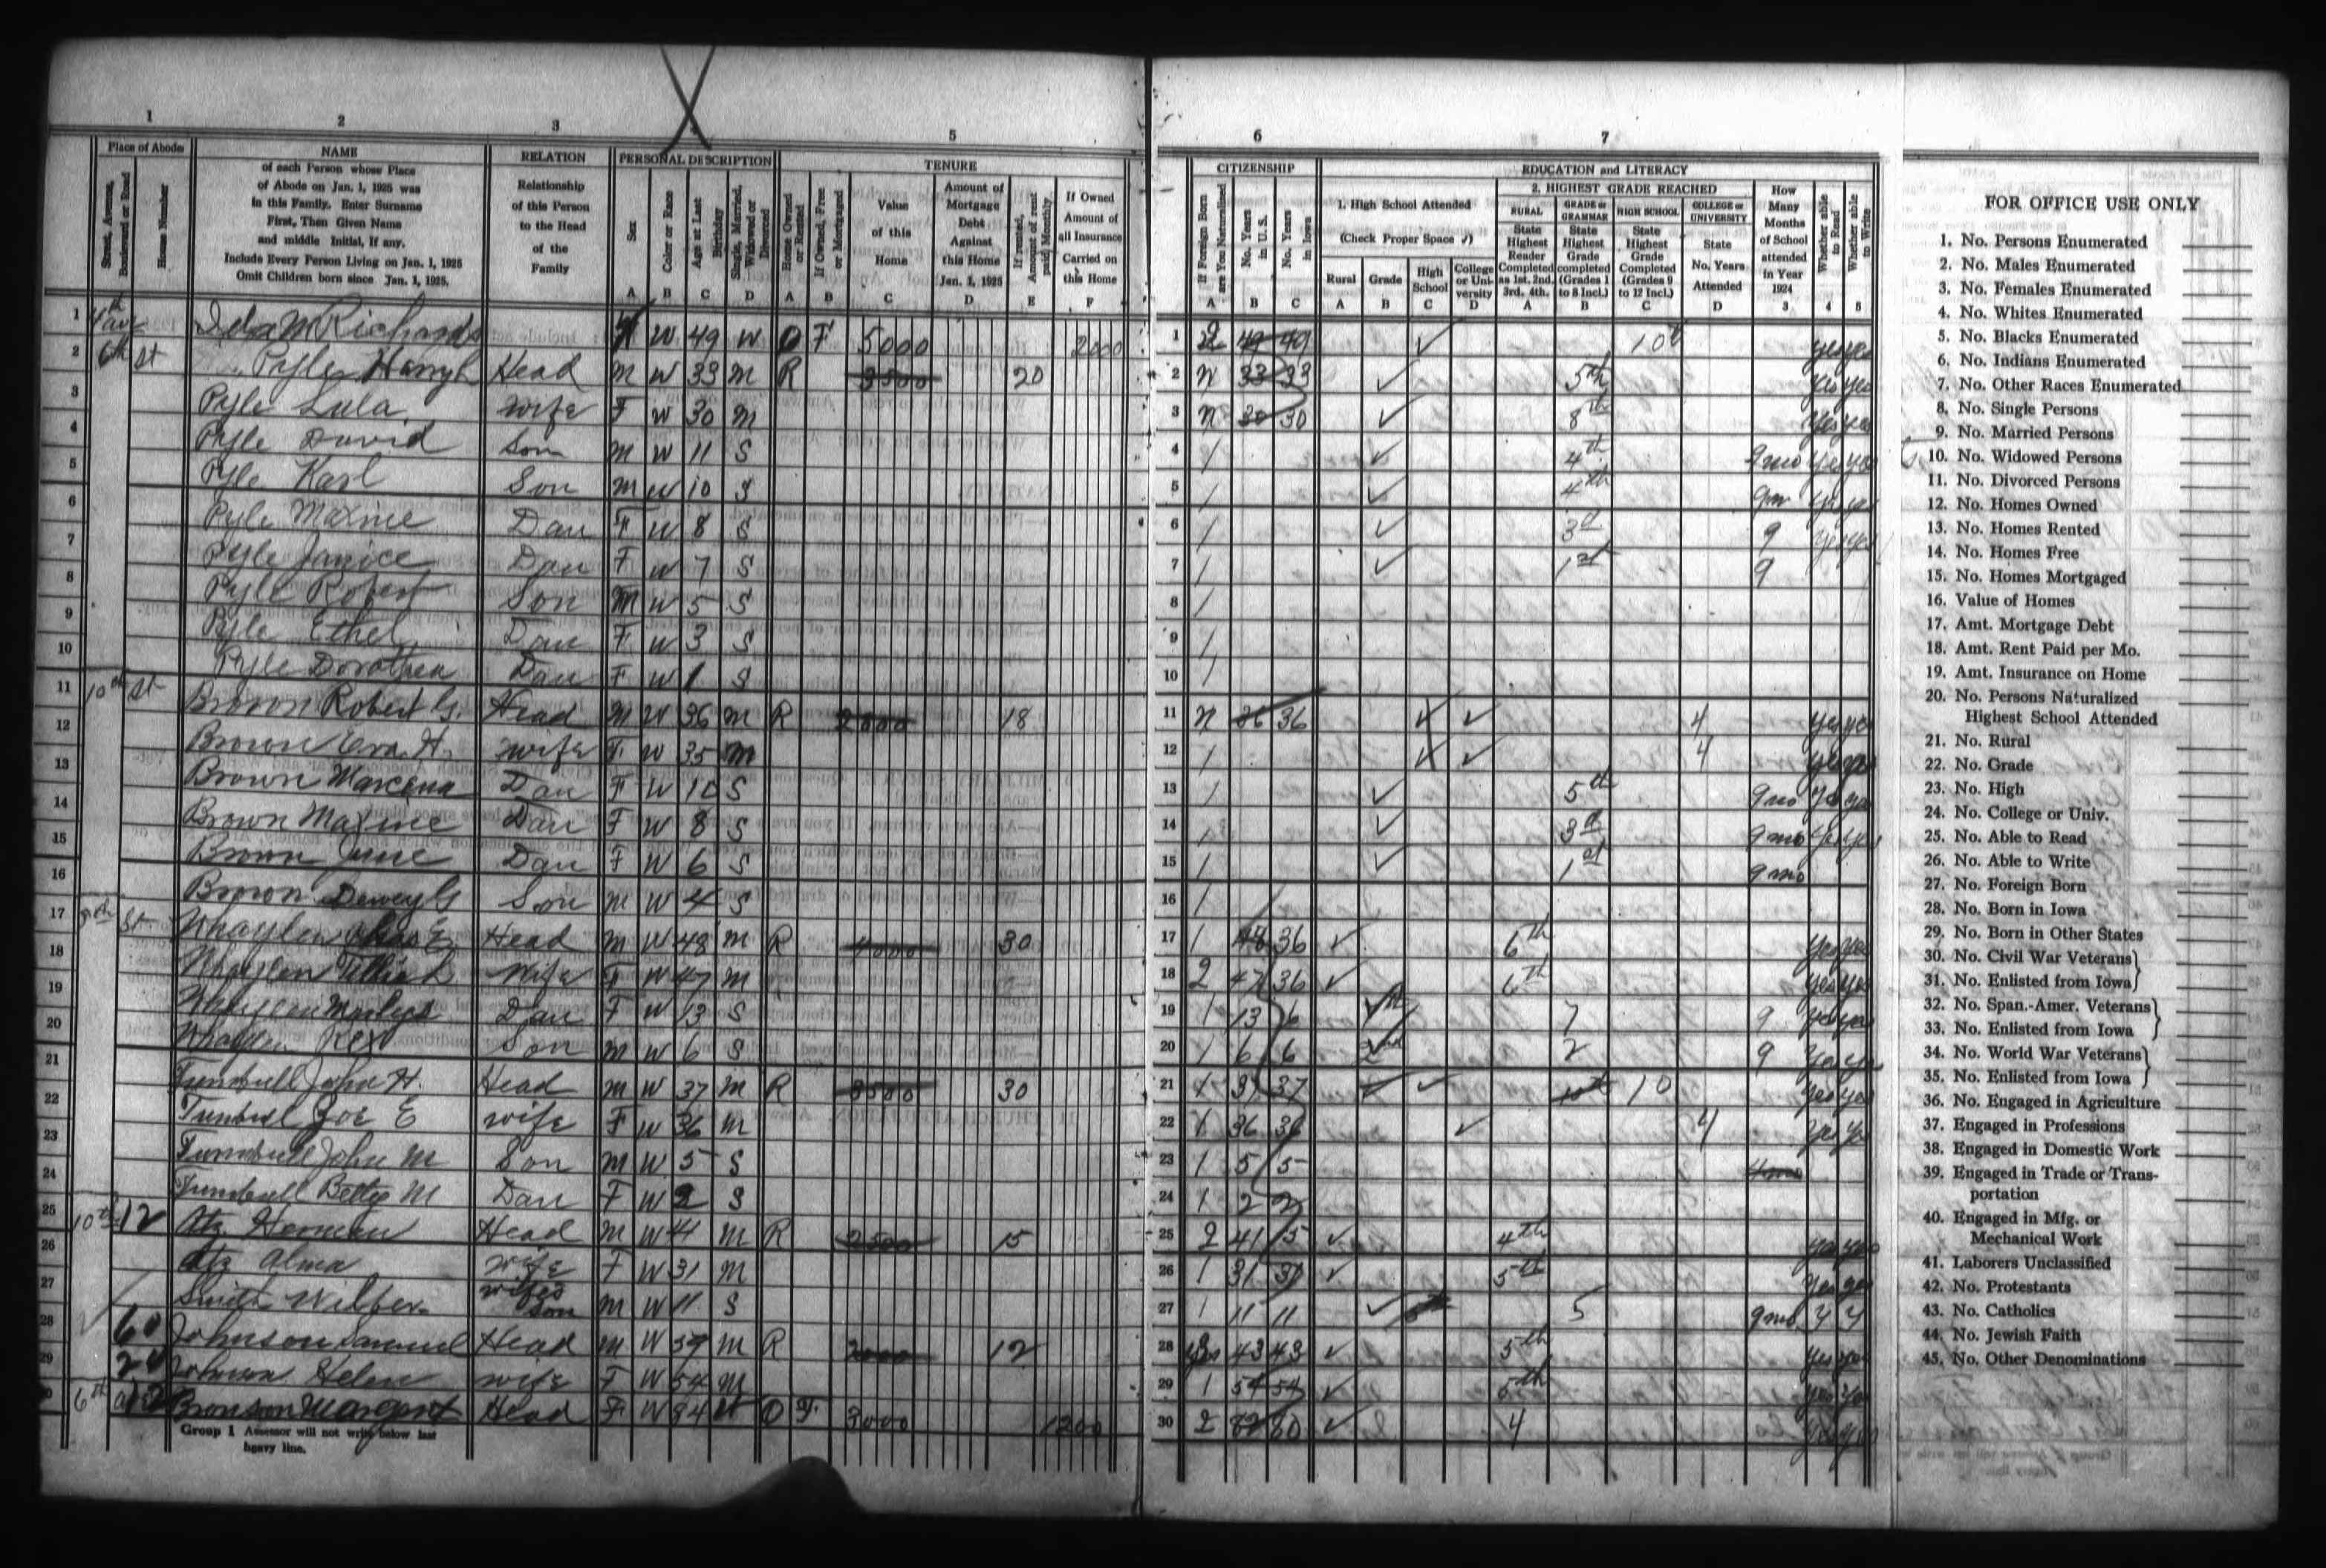 1 2 3 5 6 7
Place of Abode
Street, Avenue, Boulevard or Road
House Number
NAME
of each Person whose Place
of Abode on Jan. 1, 1925 was
in this Family. Enter Surname
First, Then Given Name
and middle Initial, if any.
Include Every Person Living on Jan. 1, 1925
Omit Children born since Jan. 1, 1925.
RELATION
Relationship
of this Person
to the Head
of the
Family
PERSONAL DESCRIPTION
Sex
Color or Race
Age at Last Birthday
Single, Married, Widowed or Divorced
A B C D
TENURE
Home Owned or Rented
If Owned, Free or Mortgaged
Value
of this
Home
Amount of
Mortgage
Debt
Against
this Home
Jan. 1, 1925
If rented, Amount of rent paid Monthly
If Owned
Amount of
all Insurance
Carried on
this Home
A B C D E F
CITIZENSHIP
If Foreign Born are You Naturalized
No. Years in U.S.
No. Years in Iowa
A B C
EDUCATION and LITERACY
1. High School Attended
(Check Proper Space ✓)
Rural Grade High School College or University
A B C D
2. HIGHEST GRADE REACHED
RURAL
State
Highest
Reader
Completed
as 1st, 2nd,
3rd, 4th.
A
GRADE or GRAMMAR
State
Highest
Grade
completed
(Grades 1
to 8 Incl.)
B
HIGH SCHOOL
State
Highest
Grade
Completed
(Grades 9
to 12 Incl.)
C
COLLEGE or UNIVERSITY
State
No. Years
Attended
D
How
Many
Months
of School
attended
in Year
1924
3
Whether able to Read
4
Whether able to Write
5
1 4th ave Richards W 49 W O F 5000 2000 1 2 49 49 ✓ 10 yes yes
2 6th st Pyle Harry Head M W 33 M R 3500 20 2 N 33 33 ✓ 5th Yes Yes
3 Pyle Lula wife F W 30 M 3 N 30 30 ✓ 8th Yes yes
4 Pyle David Son M W 11 S 4 1 ✓ 4th 9mo yes yes
5 Pyle Karl Son M W 10 S 5 1 ✓ 4th 9m
6 Pyle Maxine Dau F W 8 S 6 1 ✓ 3d 9 yes yes
7 Pyle Janice Dau F W 7 S 7 1 ✓ 1st 9
8 Pyle Robert Son M W 5 S 8 1
9 Pyle Ethel Dau F W 3 S 9 1
10 Pyle Dorothea Dau F W 1 S 10 1
11 10th St Brown Robert G. Head M W 36 M R 2000 18 11 N 36 36 ✓ 4 yes yes
12 Brown Eva H. wife F W 35 M 12 1 ✓ 4 yes yes
13 Brown Marcena Dau F W 10 S 13 1 ✓ 5th 9mo yes yes
14 Brown Maxine Dau F W 8 S 14 1 ✓ 3d 9mo yes yes
15 Brown June Dau F W 6 S 15 1 ✓ 1st 9mo
16 Brown Dewey G Son M W 4 S 16 1
17 St Whaylen Chas E Head M W 48 M R 4000 30 17 1 48 36 ✓ 6th Yes Yes
18 Whaylen Tillie L Wife F W 47 M 18 2 47 36 ✓ 6th yes yes
19 Dau F W 13 S 19 1 13 6 7 9 yes yes
20 Whaylen Rex Son M W 6 S 20 1 6 6 2 9
21 Turnbull John H. Head M W 37 M R 3500 30 21 1 37 37 ✓ 10 yes yes
22 Zoe E wife F W 36 M 22 1 36 36 ✓ 4 yes
23 Turnbull John M Son M W 5 S 23 1 5 5
24 Turnbull Betty M Dau F W 2 S 24 1 2 2
25 10th 12 Herman Head M W 41 M R 2500 15 25 2 41 5 ✓ 4th
26 Alma wife F W 31 M 26 1 31 31 ✓ 5th yes yes
27 Smith Wilber wifes son M W 11 S 27 1 11 11 ✓ 5 9mo y y
28 60 Johnson Samuel Head M W 59 M R 2000 12 28 43 43 ✓ 5th yes yes
29 Johnson Helen wife F W 54 M 29 1 54 54 ✓ 5th
30 6th Bronson Margaret Head F W 84 W O F 3000 1200 30 2 80 ✓ 4
Group 1 Assessor will not write below last
heavy line.
FOR OFFICE USE ONLY
1. No. Persons Enumerated
2. No. Males Enumerated
3. No. Females Enumerated
4. No. Whites Enumerated
5. No. Blacks Enumerated
6. No. Indians Enumerated
7. No. Other Races Enumerated
8. No. Single Persons
9. No. Married Persons
10. No. Widowed Persons
11. No. Divorced Persons
12. No. Homes Owned
13. No. Homes Rented
14. No. Homes Free
15. No. Homes Mortgaged
16. Value of Homes
17. Amt. Mortgage Debt
18. Amt. Rent Paid per Mo.
19. Amt. Insurance on Home
20. No. Persons Naturalized
Highest School Attended
21. No. Rural
22. No. Grade
23. No. High
24. No. College or Univ.
25. No. Able to Read
26. No. Able to Write
27. No. Foreign Born
28. No. Born in Iowa
29. No. Born in Other States
30. No. Civil War Veterans
31. No. Enlisted from Iowa
32. No. Span.-Amer. Veterans
33. No. Enlisted from Iowa
34. No. World War Veterans
35. No. Enlisted from Iowa
36. No. Engaged in Agriculture
37. Engaged in Professions
38. Engaged in Domestic Work
39. Engaged in Trade or Trans-
portation
40. Engaged in Mfg. or
Mechanical Work
41. Laborers Unclassified
42. No. Protestants
43. No. Catholics
44. No. Jewish Faith
45. No. Other Denominations